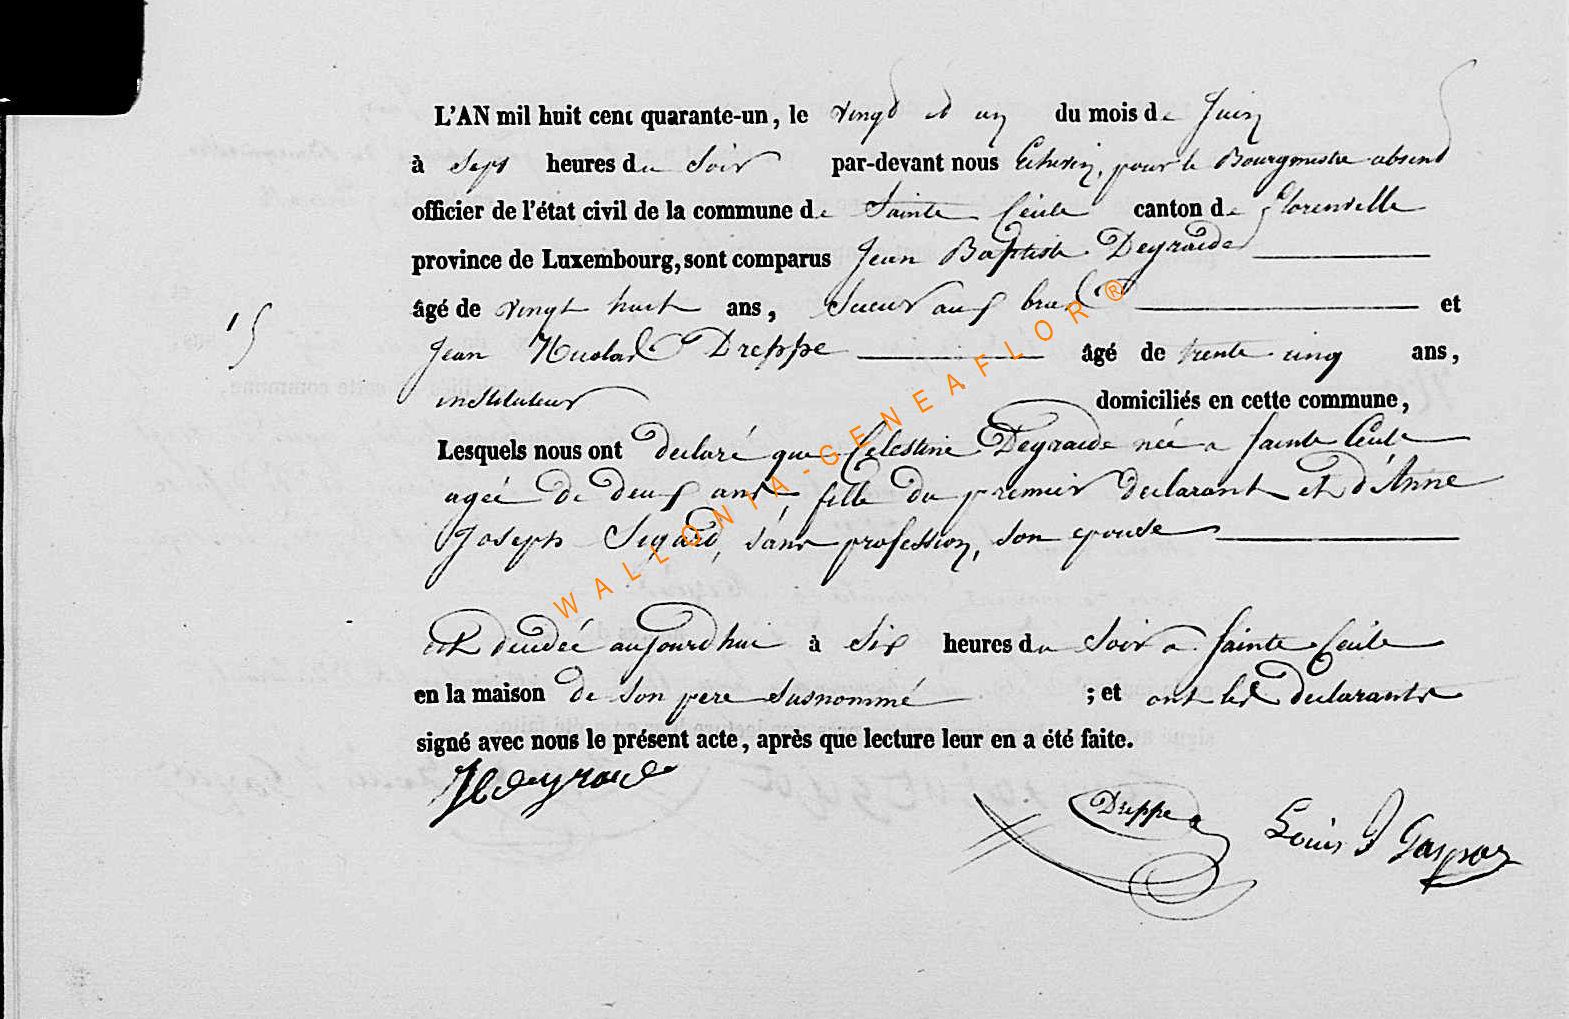 L'AN mil huit cent quarante-un, le vingt et un du mois de Juin
à Sept heures du Soir par-devant nous Echevin, pour le Bourgmestre absent
officier de l'état civil de la commune de Sainte Cécile canton de Florenville
province de Luxembourg, sont comparus Jean Baptiste Degraide
âgé de vingt huit ans, Scieur aux bras et
15
Jean Nicolas Dreppe âgé de trente cinq ans,
instituteur domiciliés en cette commune,
Lesquels nous ont declaré que Celestine Degraide née a Sainte Cécile
agée de deux ans, fille du premier declarant et d'Anne
Joseph Sigard, sans profession, son epouse
est decedée aujourd'hui à Six heures du Soir a Sainte Cécile
en la maison de son pere susnommé ; et ont les declarants
signé avec nous le présent acte, après que lecture leur en a été faite.
JBdegraide
Dreppe
Louis J Gaspar
WALLONIA-GENEAFLOR®